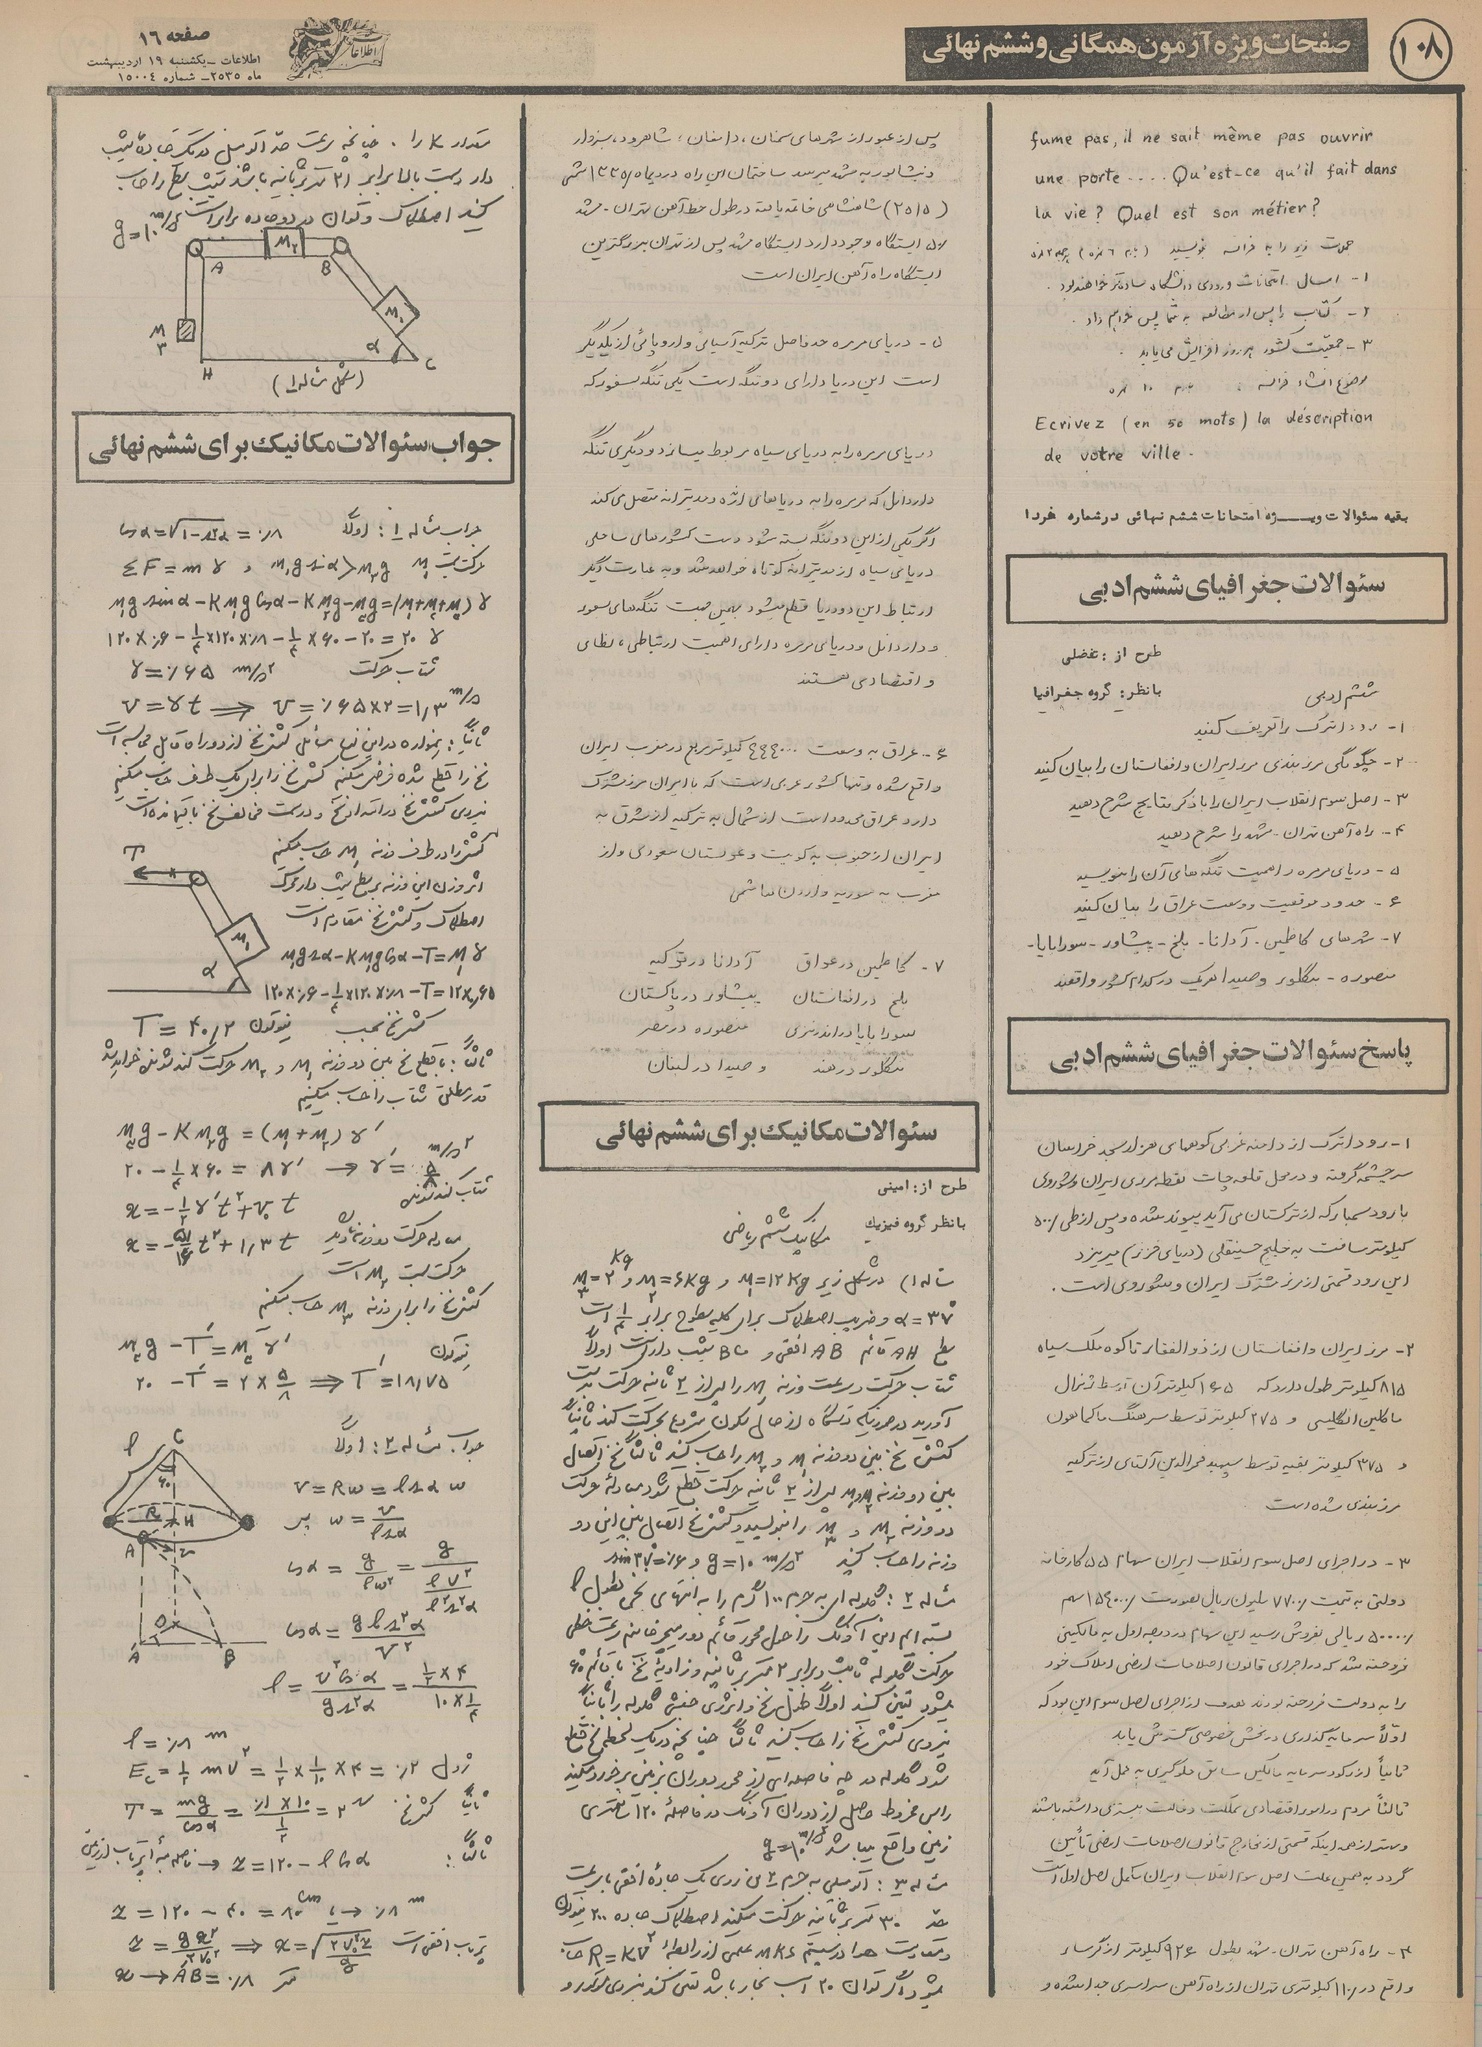 ۱۰۸
صفحات ویژه آزمون همگانی و ششم نهائی
اطلاعات
صفحه ۱۶
اطلاعات ـ یکشنبه ۱۹ اردیبهشت
ماه ۲۵۳۵ـ شماره ۱۵۰۰۴
fume pas, il ne sait même pas ouvrir
une porte .... Qu'est-ce qu'il fait dans
la vie? Quel est son métier?
۱- امسال امتحانات ورودی دانشگاه ساده‌تر خواهند بود.
۲- کتاب را پس از مطالعه به شما پس خواهم داد.
۳- جمعیت کشور هر روز افزایش می‌یابد.
موضوع انشاء فرانسه : ۱۰ نمره
Ecrivez (en 50 mots) la déscription
de votre ville.
بقیه سئوالات ویــژه امتحانات ششم نهائی در شماره فردا
سئوالات جغرافیای ششم ادبی
طرح از : تفضلی
با نظر: گروه جغرافیا
ششم ادبی
۱- رود اترک را تعریف کنید
۲- چگونگی مرزبندی مرز ایران و افغانستان را بیان کنید
۳- اصل سوم انقلاب ایران را با ذکر نتایج شرح دهید
۴- راه آهن تهران - مشهد را شرح دهید
۵- دریای مرمره و اهمیت تنگه‌های آن را بنویسید
۶- حدود موقعیت و وسعت عراق را بیان کنید
۷- شهرهای کاظمین - آدانا - بلخ - پیشاور - سورابایا -
منصوره - بنگلور و صیدا هریک در کدام کشور واقعند
پاسخ سئوالات جغرافیای ششم ادبی
۱- رود اترک از دامنه غربی کوههای هزار مسجد خراسان
سرچشمه گرفته و در محل قلعه چات نقطه مرزی ایران و شوروی
با رود سمبار که از ترکستان می‌آید پیوند شده و پس از طی ۵۰۰
کیلومتر مسافت به خلیج حسینقلی (دریای خزر) میریزد
این رود قسمتی از مرز مشترک ایران و شوروی است.
۲- مرز ایران و افغانستان از ذوالفقار تا کوه ملک سیاه
۸۱۵ کیلومتر طول دارد که ۱۶۵ کیلومتر آن توسط ژنرال
ماکلین انگلیسی و ۲۷۵ کیلومتر توسط سرهنگ ماکماهون
و ۳۷۵ کیلومتر بقیه توسط سپهبد فخرالدین آلتای از ترکیه
مرزبندی شده است
۳- در اجرای اصل سوم انقلاب ایران سهام ۵۵ کارخانه
دولتی به قیمت ۷۷۰۰ ملیون ریال بصورت ۱۵۴۰۰۰ سهم
۵۰۰۰۰ ریالی بفروش رسید این سهام در درجه اول به مالکینی
فروخته شد که در اجرای قانون اصلاحات ارضی املاک خود
را به دولت فروخته بودند هدف از اجرای اصل سوم این بود که
اولاً سرمایه گذاری در بخش خصوصی گسترش یابد
ثانیاً از رکود سرمایه مالکین سابق جلوگیری به عمل آید
ثالثاً مردم در امور اقتصادی مملکت دخالت بیشتری داشته باشند
و مهمتر از همه اینکه قسمتی از مخارج قانون اصلاحات ارضی تأمین
گردد به همین علت اصل سوم انقلاب ایران مکمل اصل اول است
۴- راه آهن تهران - مشهد بطول ۹۲۶ کیلومتر از گرمسار
واقع در ۱۱۰ کیلومتری تهران از راه آهن سراسری جدا شده و
پس از عبور از شهرهای سمنان، دامغان، شاهرود، سبزوار
و نیشابور به مشهد میرسد ساختمان این راه در دیماه ۱۳۳۵ شمسی
(۲۵۱۵) شاهنشاهی خاتمه یافت در طول خط آهن تهران - مشهد
ایستگاه وجود دارد ایستگاه مشهد پس از تهران بزرگترین
ایستگاه راه آهن ایران است
۵- دریای مرمره حد فاصل ترکیه آسیائی و اروپائی از یکدیگر
است این دریا دارای دو تنگه است یکی تنگه بسفور که
دریای مرمره را به دریای سیاه مربوط میسازد و دیگری تنگه
داردانل که مرمره را به دریاهای اژه و مدیترانه متصل می کند
اگر یکی از این دو تنگه بسته شود دست کشورهای ساحلی
دریای سیاه از مدیترانه کوتاه خواهد شد و به عبارت دیگر
ارتباط این دو دریا قطع میشود بهمین جهت تنگه‌های بسفور
و داردانل و دریای مرمره دارای اهمیت ارتباطی، نظامی
و اقتصادی هستند
۶- عراق به وسعت ۴۴۴۰۰۰ کیلومتر مربع در مغرب ایران
واقع شده و تنها کشور عربی است که با ایران مرز مشترک
دارد عراق محدود است از شمال به ترکیه از شرق به
ایران از جنوب به کویت و عربستان سعودی و از
مغرب به سوریه و اردن هاشمی
۷- کاظمین در عراق آدانا در ترکیه
بلخ در افغانستان پیشاور در پاکستان
سورابایا در اندونزی منصوره در مصر
بنگلور در هند و صیدا در لبنان
سئوالات مکانیک برای ششم نهائی
طرح از: امینی
با نظر گروه فیزیک
مکانیک ششم ریاضی
مساله ۱) در شکل زیر M₁=۱۲Kg و M₂=۶Kg و M₃=۲Kg
α=۳۷° و ضریب اصطکاک برای کلیه سطوح برابر ۱/۴ است
سطح AH قائم AB افقی و BC شیب دار است اولاً
شتاب حرکت و سرعت وزنه M₁ را پس از ۲ ثانیه حرکت بدست
آورید در صورتیکه دستگاه از حال سکون شروع بحرکت کند ثانیاً
کشش نخ بین دو وزنه M₁ و M₂ را حساب کنید ثالثاً نخ اتصال
بین دو وزنه M₁ و M₂ پس از ۲ ثانیه حرکت قطع شود معادله حرکت
دو وزنه M₂ و M₃ را بنویسید و کشش نخ اتصال بین این دو
وزنه را حساب کنید g=۱۰ m/s² و sin۳۷°=۰/۶
مساله ۲: گلوله ای به جرم ۱۰۰ گرم را به انتهای نخی بطول l
بسته ایم این آونگ را حول محور قائم دور میچرخانیم سرعت خطی
حرکت گلوله ثابت و برابر ۲ متر بر ثانیه و زاویه نخ با قائم ۶۰°
میشود تعیین کنید اولاً طول نخ و انرژی جنبشی گلوله را ثانیاً
نیروی کشش نخ را حساب کنید ثالثاً چنانچه در یک لحظه نخ قطع
شود گلوله در چه فاصله‌ای از محور دوران بزمین برخورد میکند
راس مخروط حاصل از دوران آونگ در فاصله ۱۲۰ سانتیمتری
زمین واقع میباشد g=۱۰ m/s²
مساله ۳: اتومبیلی به جرم ۲ تن روی یک جاده افقی با سرعت
حد ۳۰ متر بر ثانیه حرکت میکند اصطکاک جاده ۲۰۰ نیوتون
و مقاومت هوا در سیستم MKS عملی از رابطه R=KV² حساب
میشود اگر توان ۲۰ اسب بخار باشد تعیین کنید نیروی موتور و
مقدار K را . چنانچه سرعت حد اتومبیل در یک جاده شیب
دار بسمت بالا برابر ۲۱ متر بر ثانیه باشد شیب سطح را حساب
کنید اصطکاک و توان در دو جاده برابر است g=۱۰ m/s²
M₂
A
B
M₁
M₃
α
H
C
(شکل مساله ۱)
جواب سئوالات مکانیک برای ششم نهائی
جواب مساله ۱: اولاً cosα=√(۱-sin²α)=۰/۸
حرکت بسمت M₁ M₁g sinα>M₃g و ΣF=mγ
M₁g sinα-KM₁g cosα-KM₂g-M₃g=(M₁+M₂+M₃)γ
۱۲۰×۰/۶-۱/۴×۱۲۰×۰/۸-۱/۴×۶۰-۲۰=۲۰γ
شتاب حرکت γ=۰/۶۵ m/s²
V=γt ⟹ V=۰/۶۵×۲=۱/۳ m/s
ثانیاً: همواره در این نوع مسائل کشش نخ از دو راه قابل محاسبه است
نخ را قطع شده فرض میکنیم کشش نخ را برای یک طرف حساب میکنیم
کشش را در طرف وزنه M₁ حساب میکنیم
اثر وزن این وزنه بر سطح شیب دار محرک
اصطکاک و کشش نخ مقاوم است
T
M₁
α
M₁g sinα-KM₁g cosα-T=M₁γ
۱۲۰×۰/۶-۱/۴×۱۲۰×۰/۸-T=۱۲×۰/۶۵
کشش نخ بحسب نیوتون T=۴۰/۲
ثالثاً: با قطع نخ بین دو وزنه M₁ و M₂ حرکت کند شونده خواهد شد
قدر مطلق شتاب را حساب میکنیم
M₃g-KM₂g=(M₂+M₃)γ'
۲۰-۱/۴×۶۰=۸γ' → γ'=۵/۸ m/s²
شتاب کند شونده
x=-۱/۲γ't²+V₀t
x=-۵/۱۶t²+۱/۳t
حرکت بسمت M₁ است
کشش نخ را برای وزنه M₃ حساب میکنیم
M₃g-T'=M₃γ' نیوتون
۲۰-T'=۲×۵/۸ ⟹ T'=۱۸/۷۵
جواب مساله ۲: اولاً
l
C
۶۰
R
H
A
V
O
A'
B
V=Rω=l sinα ω
پس ω=V/(l sinα)
cosα=g/(lω²)=g/(lV²/(l²sin²α))
cosα=gl sin²α/V²
l=V²cosα/(g sin²α)=(۱/۲×۴)/(۱۰×۳/۴)
l=۰/۸ m
ژول E_c=۱/۲mV²=۱/۲×۱/۱۰×۴=۰/۲
ثانیاً کشش نخ T=mg/cosα=(۰/۱×۱۰)/(۱/۲)=۲N
ثالثاً: z=۱۲۰-l cosα → فاصله مبدأ پرتاب از زمین
z=۱۲۰-۴۰=۸۰cm یا → ۰/۸m
پرتاب افقی است z=gx²/(۲V₀²) ⟹ x=√(۲V₀²z/g)
x → A'B=۰/۸ متر